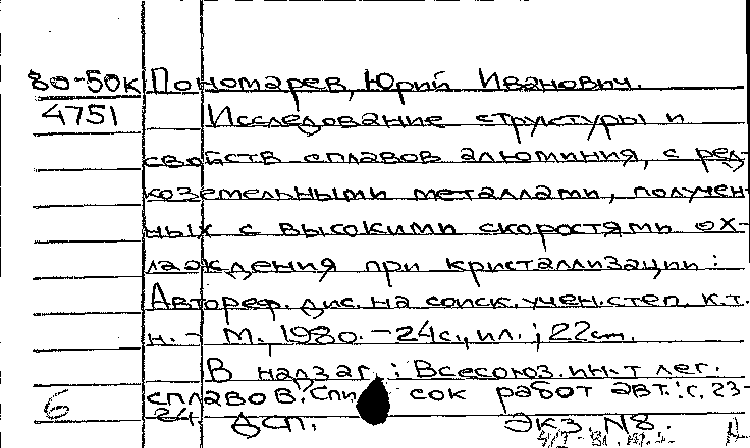 80-50к Пономарев, Юрий Иванович.
4751 Исследование структуры и
свойств сплавов алюминия, с ред-
коземельными металлами, получен-
ных с высокими скоростями ох-
лаждения при кристаллизации:
Автореф. дис. на соиск. учен. степ. к.т.
н. - М., 1980. - 24с., ил.; 22см.
В надзаг.: Всесоюз. ин-т лег.
сплавов. Список работ авт.: с. 23-
6 24. ДСП. Экз. N8.